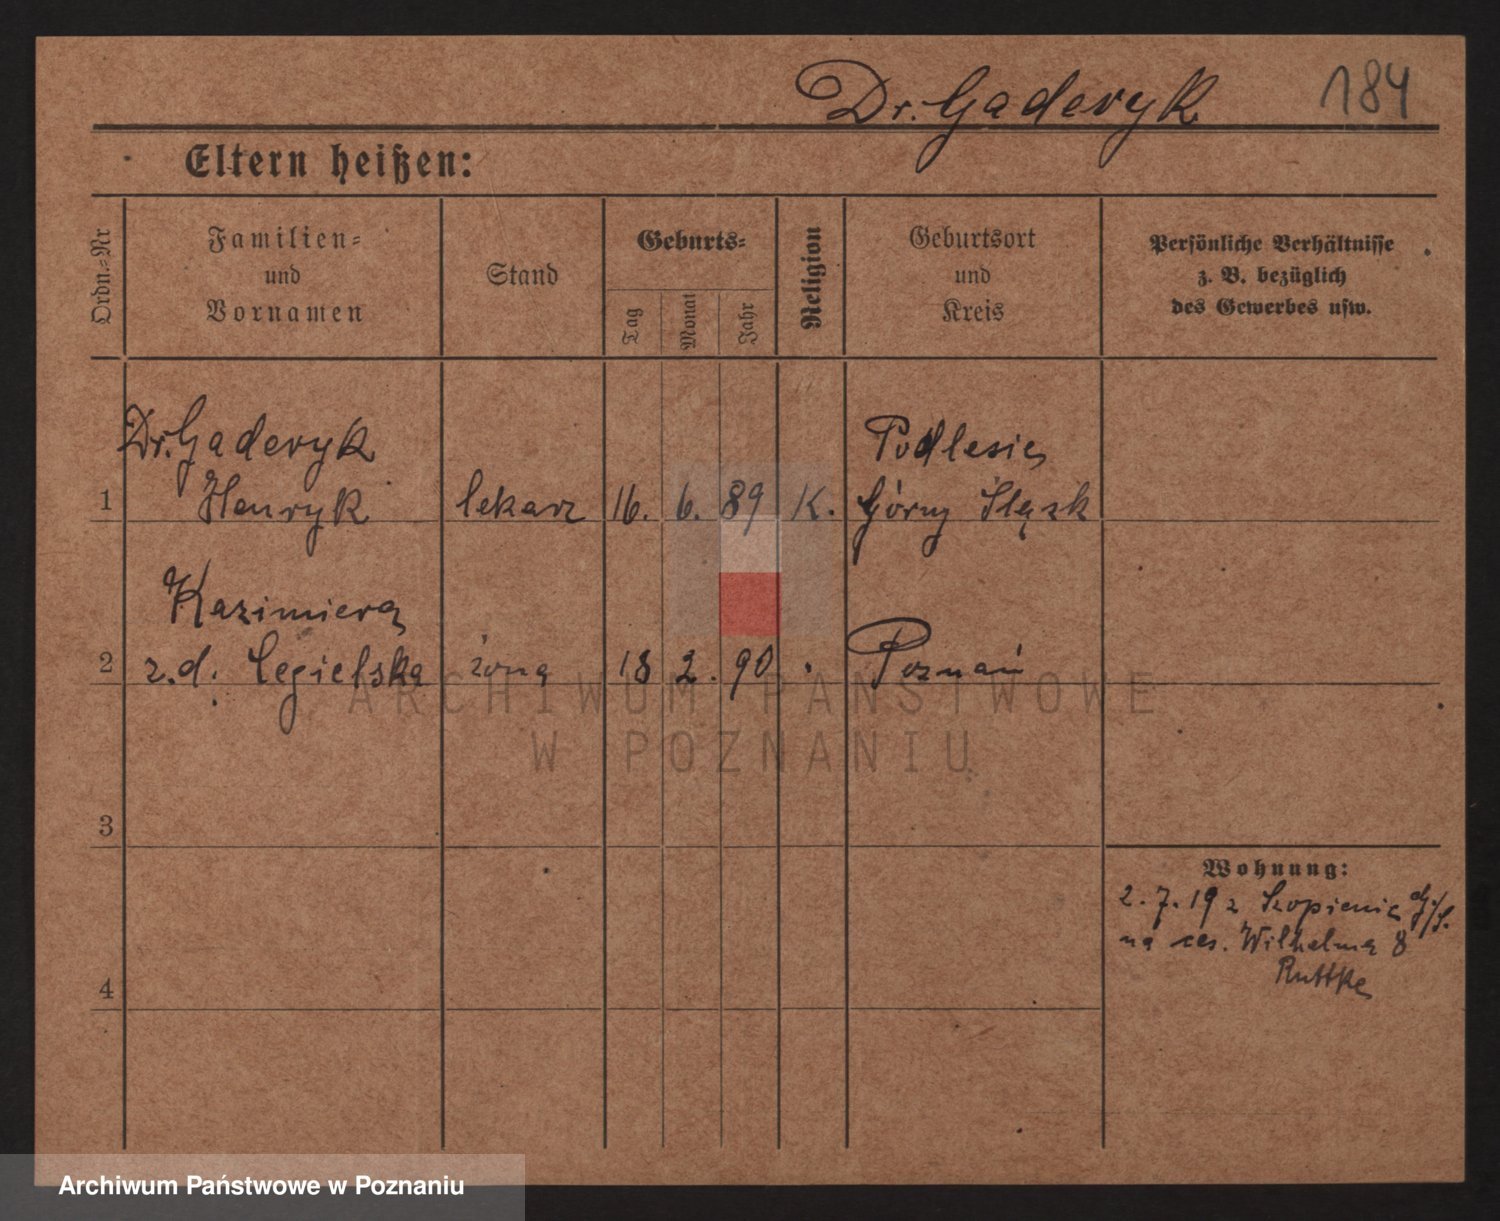 Dr. Gaderyk 184
Eltern heißen:
Ordn.-Nr
Familien-
und
Vornamen
Stand
Geburts-
Tag
Monat
Jahr
Religion
Geburtsort
und
Kreis
Persönliche Verhältnisse
z. B. bezüglich
des Gewerbes usw.
Dr. Gaderyk Podlesie,
1 Henryk lekarz 16. 6. 89 K. Górny Śląsk
Kazimiera
2 z.d. Cegielska żona 18 2. 90 Poznań
ARCHIWUM PAŃSTWOWE
W POZNANIU
3
Wohnung:
2.7.19 z Szopienic G./S.
na ces. Wilhelma 8
Ruttke
4
Archiwum Państwowe w Poznaniu